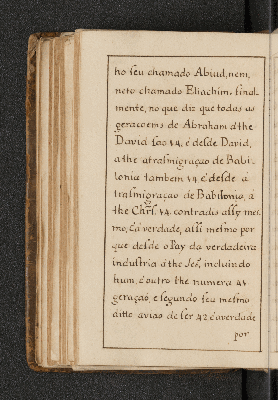 no seu chamado Abiud, nem,
neto chamado Eliachim, final-
mente, no que diz que todas as
geracoens de Abraham athe
David sao 14, e desde David,
athe a trasmigraçao de Babi-
lonia tambem 14 e desde a
trasmigraçao de Babilonia, a
the Chrõ. 14. contradis assy mes
mo, ca verdade, assi mesmo por
que desde o Pay da verdadeira
industria athe Jes, incluindo
hum, e outro the numera 41
geraçao, e segundo seu mesmo
ditto aviao de ser 42 e a verdade
por